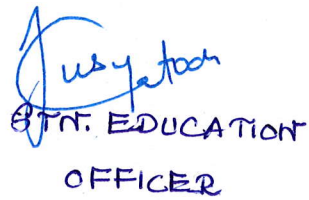 STN. EDUCATION
OFFICER